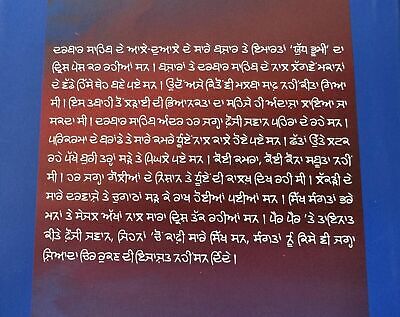 ਦਰਬਾਰ ਸਾਹਿਬ ਦੇ ਆਲੇ-ਦੁਆਲੇ ਦੇ ਸਾਰੇ ਬਜ਼ਾਰ ਤੇ ਇਮਾਰਤਾਂ 'ਯੁੱਧ ਭੂਮੀ' ਦਾ
ਦ੍ਰਿਸ਼ ਪੇਸ਼ ਕਰ ਰਹੀਆਂ ਸਨ । ਬਜ਼ਾਰਾਂ ਤੇ ਦਰਬਾਰ ਸਾਹਿਬ ਦੇ ਨਾਲ ਲੱਗਦੇ ਮਕਾਨਾਂ
ਦੇ ਵੱਡੇ ਹਿੱਸੇ ਥੇਹ ਬਣੇ ਪਏ ਸਨ । ਉਦੋਂ ਅਜੇ ਕਿਤੋਂ ਵੀ ਮਲਬਾ ਸਾਫ਼ ਨਹੀਂ ਕੀਤਾ ਗਿਆ
ਸੀ । ਇਸ ਤਬਾਹੀ ਤੋਂ ਲੜਾਈ ਦੀ ਭਿਆਨਕਤਾ ਦਾ ਸਹਿਜੇ ਹੀ ਅੰਦਾਜ਼ਾ ਲਾਇਆ ਜਾ
ਸਕਦਾ ਸੀ । ਦਰਬਾਰ ਸਾਹਿਬ ਅੰਦਰ ਹਰ ਜਗ੍ਹਾ ਫ਼ੌਜੀ ਜਵਾਨ ਪਹਿਰਾ ਦੇ ਰਹੇ ਸਨ ।
ਪਰਿਕਰਮਾ ਦੇ ਬਰਾਂਡੇ ਤੇ ਸਾਰੇ ਕਮਰੇ ਧੂੰਏਂ ਨਾਲ ਕਾਲੇ ਹੋਏ ਪਏ ਸਨ । ਛੱਤਾਂ ਉੱਤੇ ਲਟਕ
ਰਹੇ ਪੱਖੇ ਬੁਰੀ ਤਰ੍ਹਾਂ ਸੜੇ ਤੇ ਪਿਘਲੇ ਪਏ ਸਨ । ਕੋਈ ਕਮਰਾ, ਕੋਈ ਕੰਨਾ ਸਬੂਤਾ ਨਹੀਂ
ਸੀ । ਹਰ ਜਗ੍ਹਾ ਗੋਲੀਆਂ ਦੇ ਨਿਸ਼ਾਨ ਤੇ ਧੂੰਏਂ ਦੀ ਕਾਲਖ ਦਿਖ ਰਹੀ ਸੀ । ਲੱਕੜੀ ਦੇ
ਸਾਰੇ ਦਰਵਾਜ਼ੇ ਤੇ ਚੁਗਾਠਾਂ ਸੜ ਕੇ ਰਾਖ ਹੋਈਆਂ ਪਈਆਂ ਸਨ । ਸਿੱਖ ਸੰਗਤਾਂ ਭਰੇ
ਮਨਾਂ ਤੇ ਸੇਜਲ ਅੱਖਾਂ ਨਾਲ ਸਾਰਾ ਦ੍ਰਿਸ਼ ਤੱਕ ਰਹੀਆਂ ਸਨ । ਪੈਰ ਪੈਰ 'ਤੇ ਤਾਇਨਾਤ
ਕੀਤੇ ਫ਼ੌਜੀ ਜਵਾਨ, ਜਿਹਨਾਂ 'ਚੋਂ ਕਾਫ਼ੀ ਸਾਰੇ ਸਿੱਖ ਸਨ, ਸੰਗਤਾਂ ਨੂੰ ਕਿਸੇ ਵੀ ਜਗ੍ਹਾ
ਜ਼ਿਆਦਾ ਚਿਰ ਰੁਕਣ ਦੀ ਇਜਾਜ਼ਤ ਨਹੀਂ ਸਨ ਦਿੰਦੇ ।